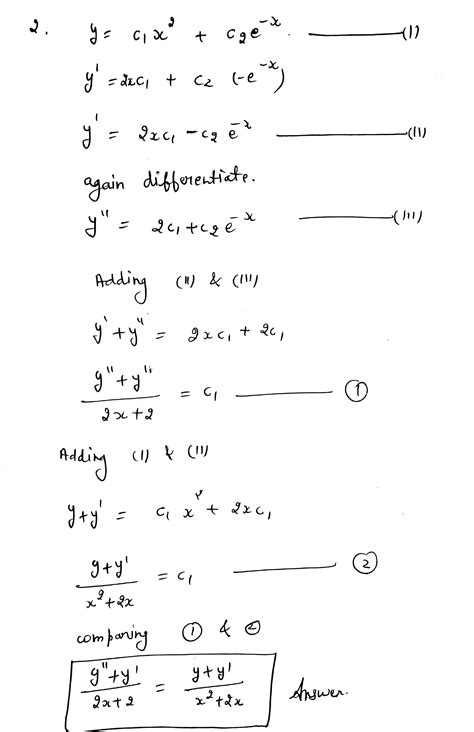 2. y = c₁x² + c₂e⁻ˣ. ———(I)
y' = 2xc₁ + c₂ (-e⁻ˣ)
y' = 2xc₁ - c₂ e⁻ˣ ———(II)
again differentiate.
y'' = 2c₁ + c₂e⁻ˣ ———(III)
Adding (II) & (III)
y' + y'' = 2xc₁ + 2c₁
(y'' + y'')/(2x+2) = c₁ ——— ①
Adding (I) & (II)
y + y' = c₁ x² + 2xc₁
(y + y')/(x²+2x) = c₁ ——— ②
comparing ① & ②
(y'' + y')/(2x+2) = (y + y')/(x²+2x) Answer.